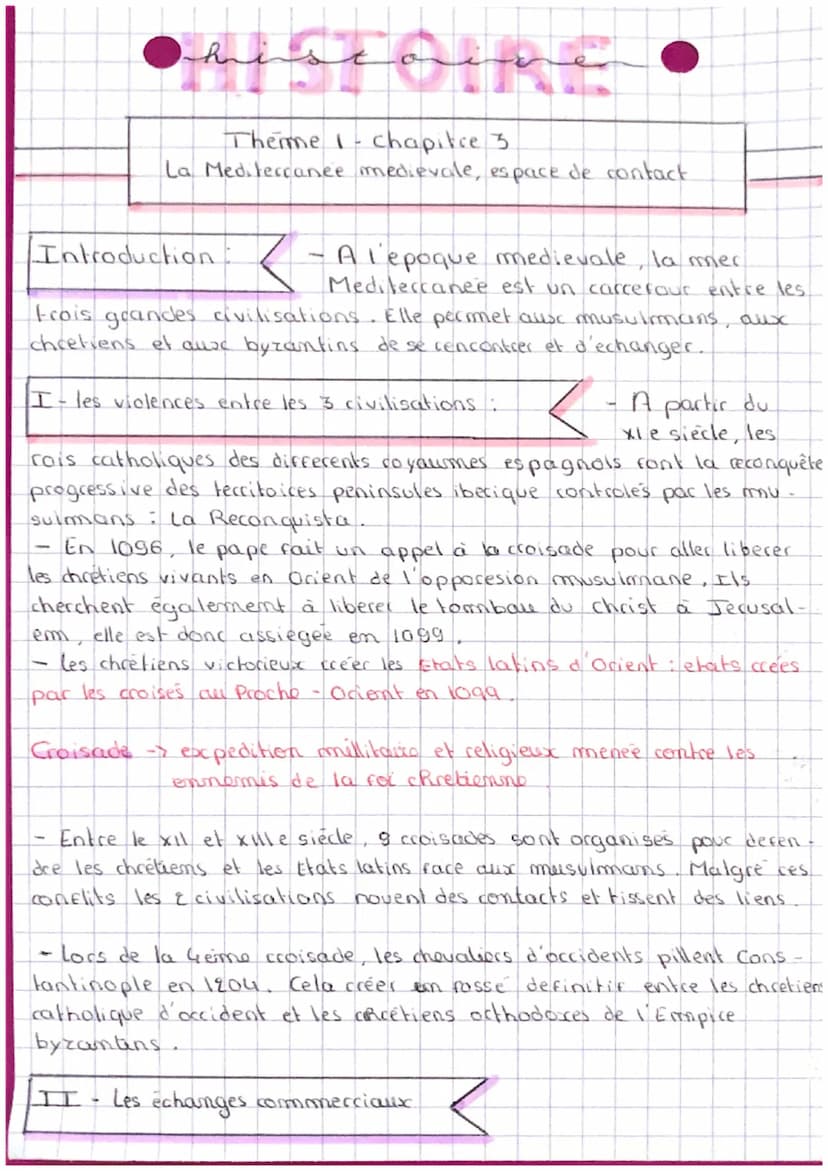 HISTOIRE
histoire
Thème 1 - chapitre 3
La Mediterranée medievale, espace de contact
Introduction :
- A l'epoque medievale, la mer
Mediterranée est un carrefour entre les
trois grandes civilisations. Elle permet aux musulmans, aux
chretiens et aux byzantins de se rencontrer et d'echanger.
I - les violences entre les 3 civilisations :
- A partir du
XIe siècle, les
rois catholiques des differents royaumes espagnols font la reconquête
progressive des territoires peninsules iberique controlés par les mu-
sulmans : La Reconquista.
- En 1096, le pape fait un appel à la croisade pour aller liberer
les chrétiens vivants en Orient de l'opporesion musulmane, Ils
cherchent également à liberer le toombau du christ à Jerusal-
em, elle est donc assiegée en 1099.
- Les chrétiens victorieux créer les Etats latins d'Orient : etats crées
par les croisés au Proche - Orient en 1099.
Croisade -> expedition millitaire et religieux menée contre les
ennemis de la foi chretienne
- Entre le XII et XIIIe siècle, 8 croisades sont organisés pour defen-
dre les chrétiens et les Etats latins face aux musulmans. Malgré ces
conflits les 2 civilisations nouent des contacts et tissent des liens.
- Lors de la 4eime croisade, les chevaliers d'occidents pillent Cons-
tantinople en 1204. Cela créer un fossé definitif entre les chretiens
catholique d'occident et les chrétiens orthodoxes de l'Empire
byzantins.
II - Les échanges commerciaux